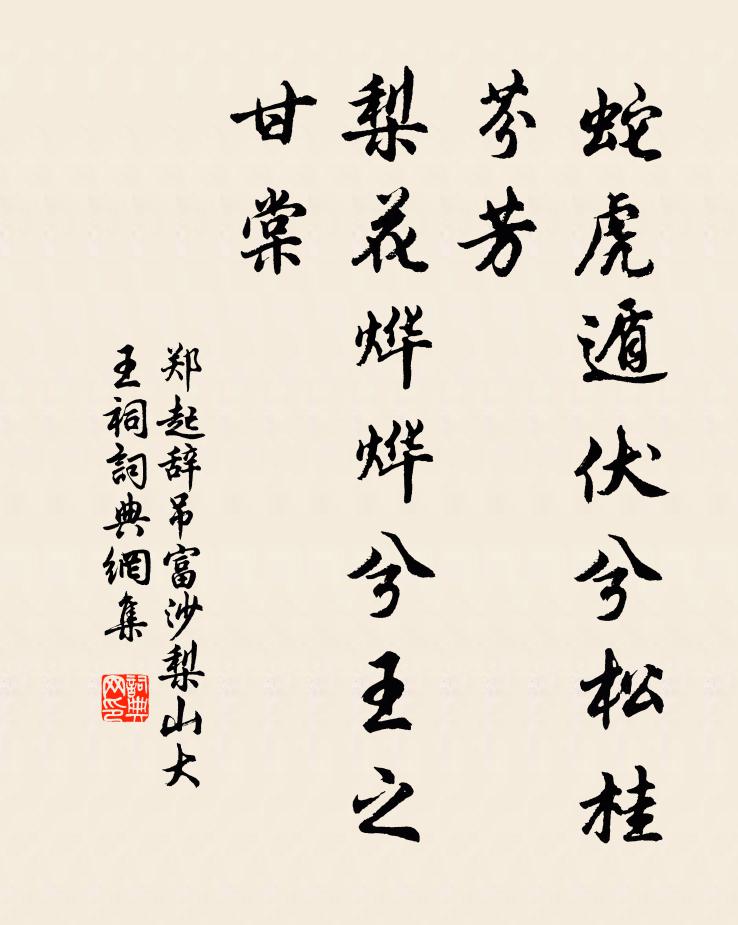 蛇虎遁伏兮松桂
芬芳
梨花烨烨兮王之
甘棠
郑起辞吊富沙梨山大
王祠詞典網集
詞典
网印